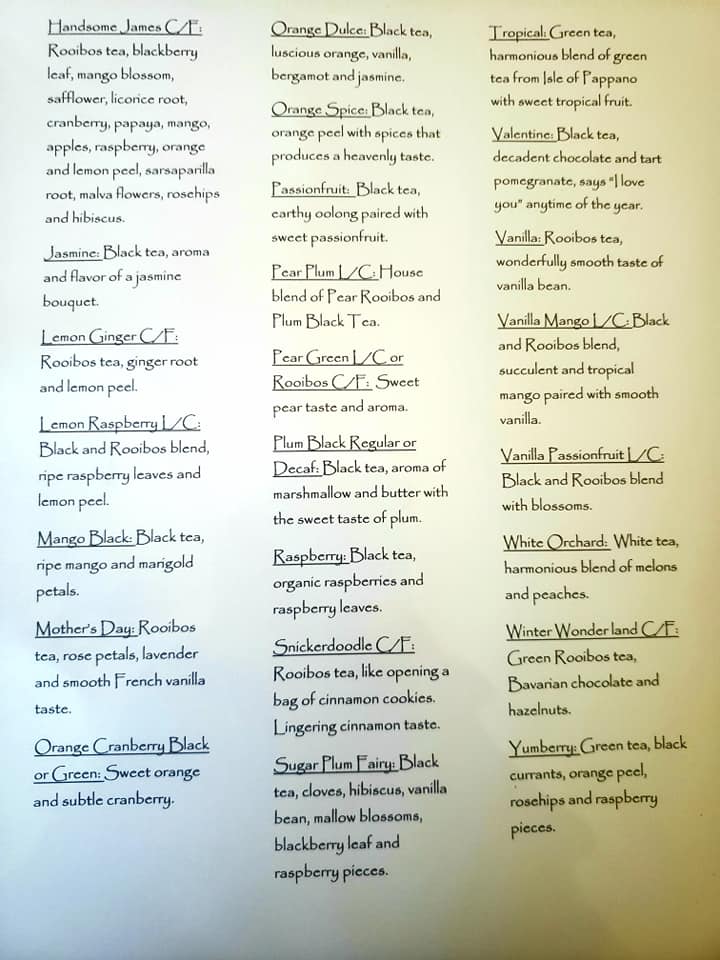 Handsome James C/F:
Rooibos tea, blackberry
leaf, mango blossom,
safflower, licorice root,
cranberry, papaya, mango,
apples, raspberry, orange
and lemon peel, sarsaparilla
root, malva flowers, rosehips
and hibiscus.
Jasmine: Black tea, aroma
and flavor of a jasmine
bouquet.
Lemon Ginger C/F:
Rooibos tea, ginger root
and lemon peel.
Lemon Raspberry L/C:
Black and Rooibos blend,
ripe raspberry leaves and
lemon peel.
Mango Black: Black tea,
ripe mango and marigold
petals.
Mother's Day: Rooibos
tea, rose petals, lavender
and smooth French vanilla
taste.
Orange Cranberry Black
or Green: Sweet orange
and subtle cranberry.
Orange Dulce: Black tea,
luscious orange, vanilla,
bergamot and jasmine.
Orange Spice: Black tea,
orange peel with spices that
produces a heavenly taste.
Passionfruit: Black tea,
earthy oolong paired with
sweet passionfruit.
Pear Plum L/C: House
blend of Pear Rooibos and
Plum Black Tea.
Pear Green L/C or
Rooibos C/F: Sweet
pear taste and aroma.
Plum Black Regular or
Decaf: Black tea, aroma of
marshmallow and butter with
the sweet taste of plum.
Raspberry: Black tea,
organic raspberries and
raspberry leaves.
Snickerdoodle C/F:
Rooibos tea, like opening a
bag of cinnamon cookies.
Lingering cinnamon taste.
Sugar Plum Fairy: Black
tea, cloves, hibiscus, vanilla
bean, mallow blossoms,
blackberry leaf and
raspberry pieces.
Tropical: Green tea,
harmonious blend of green
tea from Isle of Pappano
with sweet tropical fruit.
Valentine: Black tea,
decadent chocolate and tart
pomegranate, says "I love
you" anytime of the year.
Vanilla: Rooibos tea,
wonderfully smooth taste of
vanilla bean.
Vanilla Mango L/C: Black
and Rooibos blend,
succulent and tropical
mango paired with smooth
vanilla.
Vanilla Passionfruit L/C:
Black and Rooibos blend
with blossoms.
White Orchard: White tea,
harmonious blend of melons
and peaches.
Winter Wonder land C/F:
Green Rooibos tea,
Bavarian chocolate and
hazelnuts.
Yumberry: Green tea, black
currants, orange peel,
rosehips and raspberry
pieces.